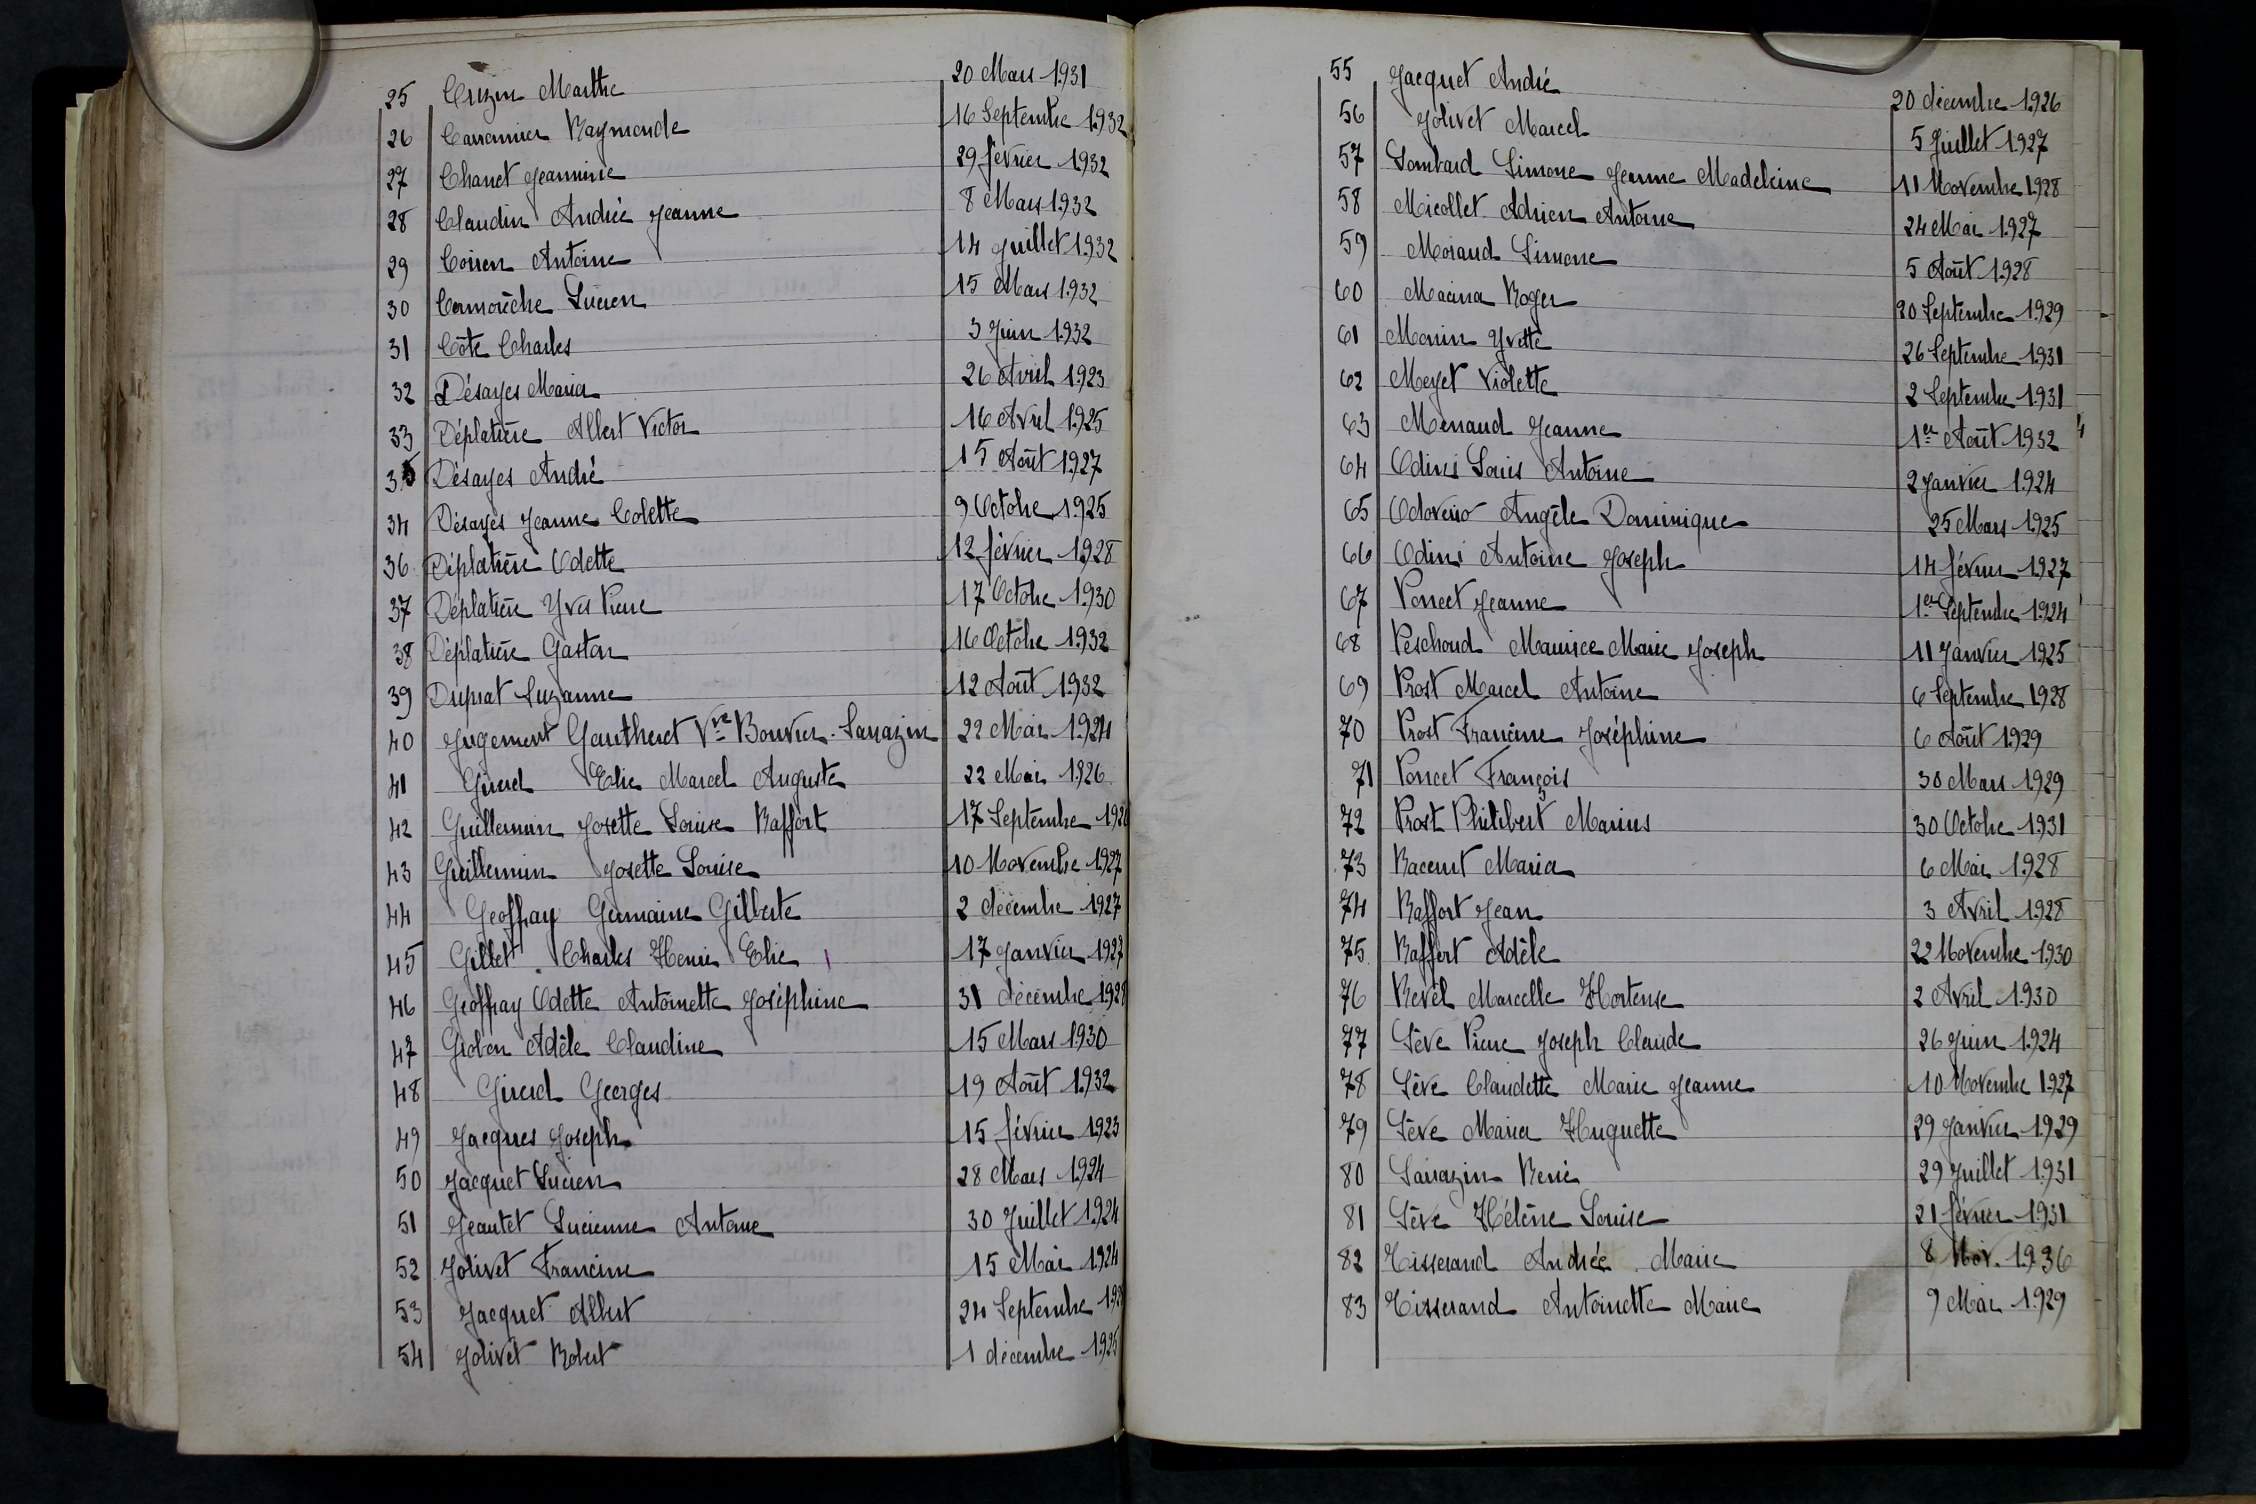 25 Cuzin Marthe 20 Mars 1931
26 Carronnier Raymonde 16 Septembre 1932
27 Chanet Jeannine 29 février 1932
28 Claudin Andrée Jeanne 8 Mars 1932
29 Coiren Antoine 14 Juillet 1932
30 Cornorèche Lucien 15 Mars 1932
31 Côte Charles 3 Juin 1932
32 Désayes Maria 26 Avril 1923
33 Déplatière Albert Victor 16 Avril 1925
35 Désayes André 15 Août 1927
34 Désayes Jeanne Colette 9 Octobre 1925
36 Déplatière Odette 12 février 1928
37 Déplatière Yves Pierre 17 Octobre 1930
38 Déplatière Gaston 16 Octobre 1932
39 Duprat Suzanne 12 Août 1932
40 Jugement Gautheret Vve Bouvier-Sarrazin 22 Mai 1924
41 Girerd Elie Marcel Auguste 22 Mai 1926
42 Guillemin Josette Louise Raffort 17 Septembre
43 Guillemin Josette Louise 10 Novembre 1927
44 Geoffray Germaine Gilberte 2 décembre 1927
45 Gillet Charles Henri Elie 17 Janvier 1927
46 Geoffray Odette Antoinette Joséphine 31 décembre 1928
47 Groben Adèle Claudine 15 Mars 1930
48 Girerd Georges 19 Août 1932
49 Jacques Joseph 15 février 1923
50 Jacquet Lucien 28 Mars 1924
51 Jeautet Lucienne Antoine 30 Juillet 1924
52 Jolivet Francine 15 Mai 1924
53 Jacquet Albert 24 Septembre
54 Jolivet Robert 1 décembre 1925
55 Jacquet André 20 décembre 1926
56 Jolivet Marcel 5 Juillet 1927
57 Lombard Simone Jeanne Madeleine 11 Novembre 1928
58 Micollet Adrien Antoine 24 Mai 1927
59 Moraud Simone 5 Août 1928
60 Macina Roger 20 Septembre 1929
61 Monin Yvette 26 Septembre 1931
62 Meyet Violette 2 Septembre 1931
63 Menaud Jeanne 1er Août 1932
64 Odini Louis Antoine 2 Janvier 1924
65 Odoreiro Angèle Dominique 25 Mars 1925
66 Odini Antoine Joseph 14 février 1927
67 Poncet Jeanne 1er Septembre 1924
68 Peschoud Maurice Marie Joseph 11 Janvier 1925
69 Prost Marcel Antoine 6 Septembre 1928
70 Prost Francine Joséphine 6 Août 1929
71 Poncet François 30 Mars 1929
72 Prost Philibert Marius 30 Octobre 1931
73 Racent Maria 6 Mai 1928
74 Raffort Jean 3 Avril 1928
75 Raffort Adèle 22 Novembre 1930
76 Revel Marcelle Hortense 2 Avril 1930
77 Sève Pierre Joseph Claude 26 Juin 1924
78 Sève Claudette Marie Jeanne 10 Novembre 1927
79 Sève Maria Huguette 29 Janvier 1929
80 Sarrazin René 29 Juillet 1931
81 Sève Hélène Louise 21 février 1931
82 Tisserand Andrée Marie 8 Nov. 1936
83 Tisserand Antoinette Marie 9 Mai 1929